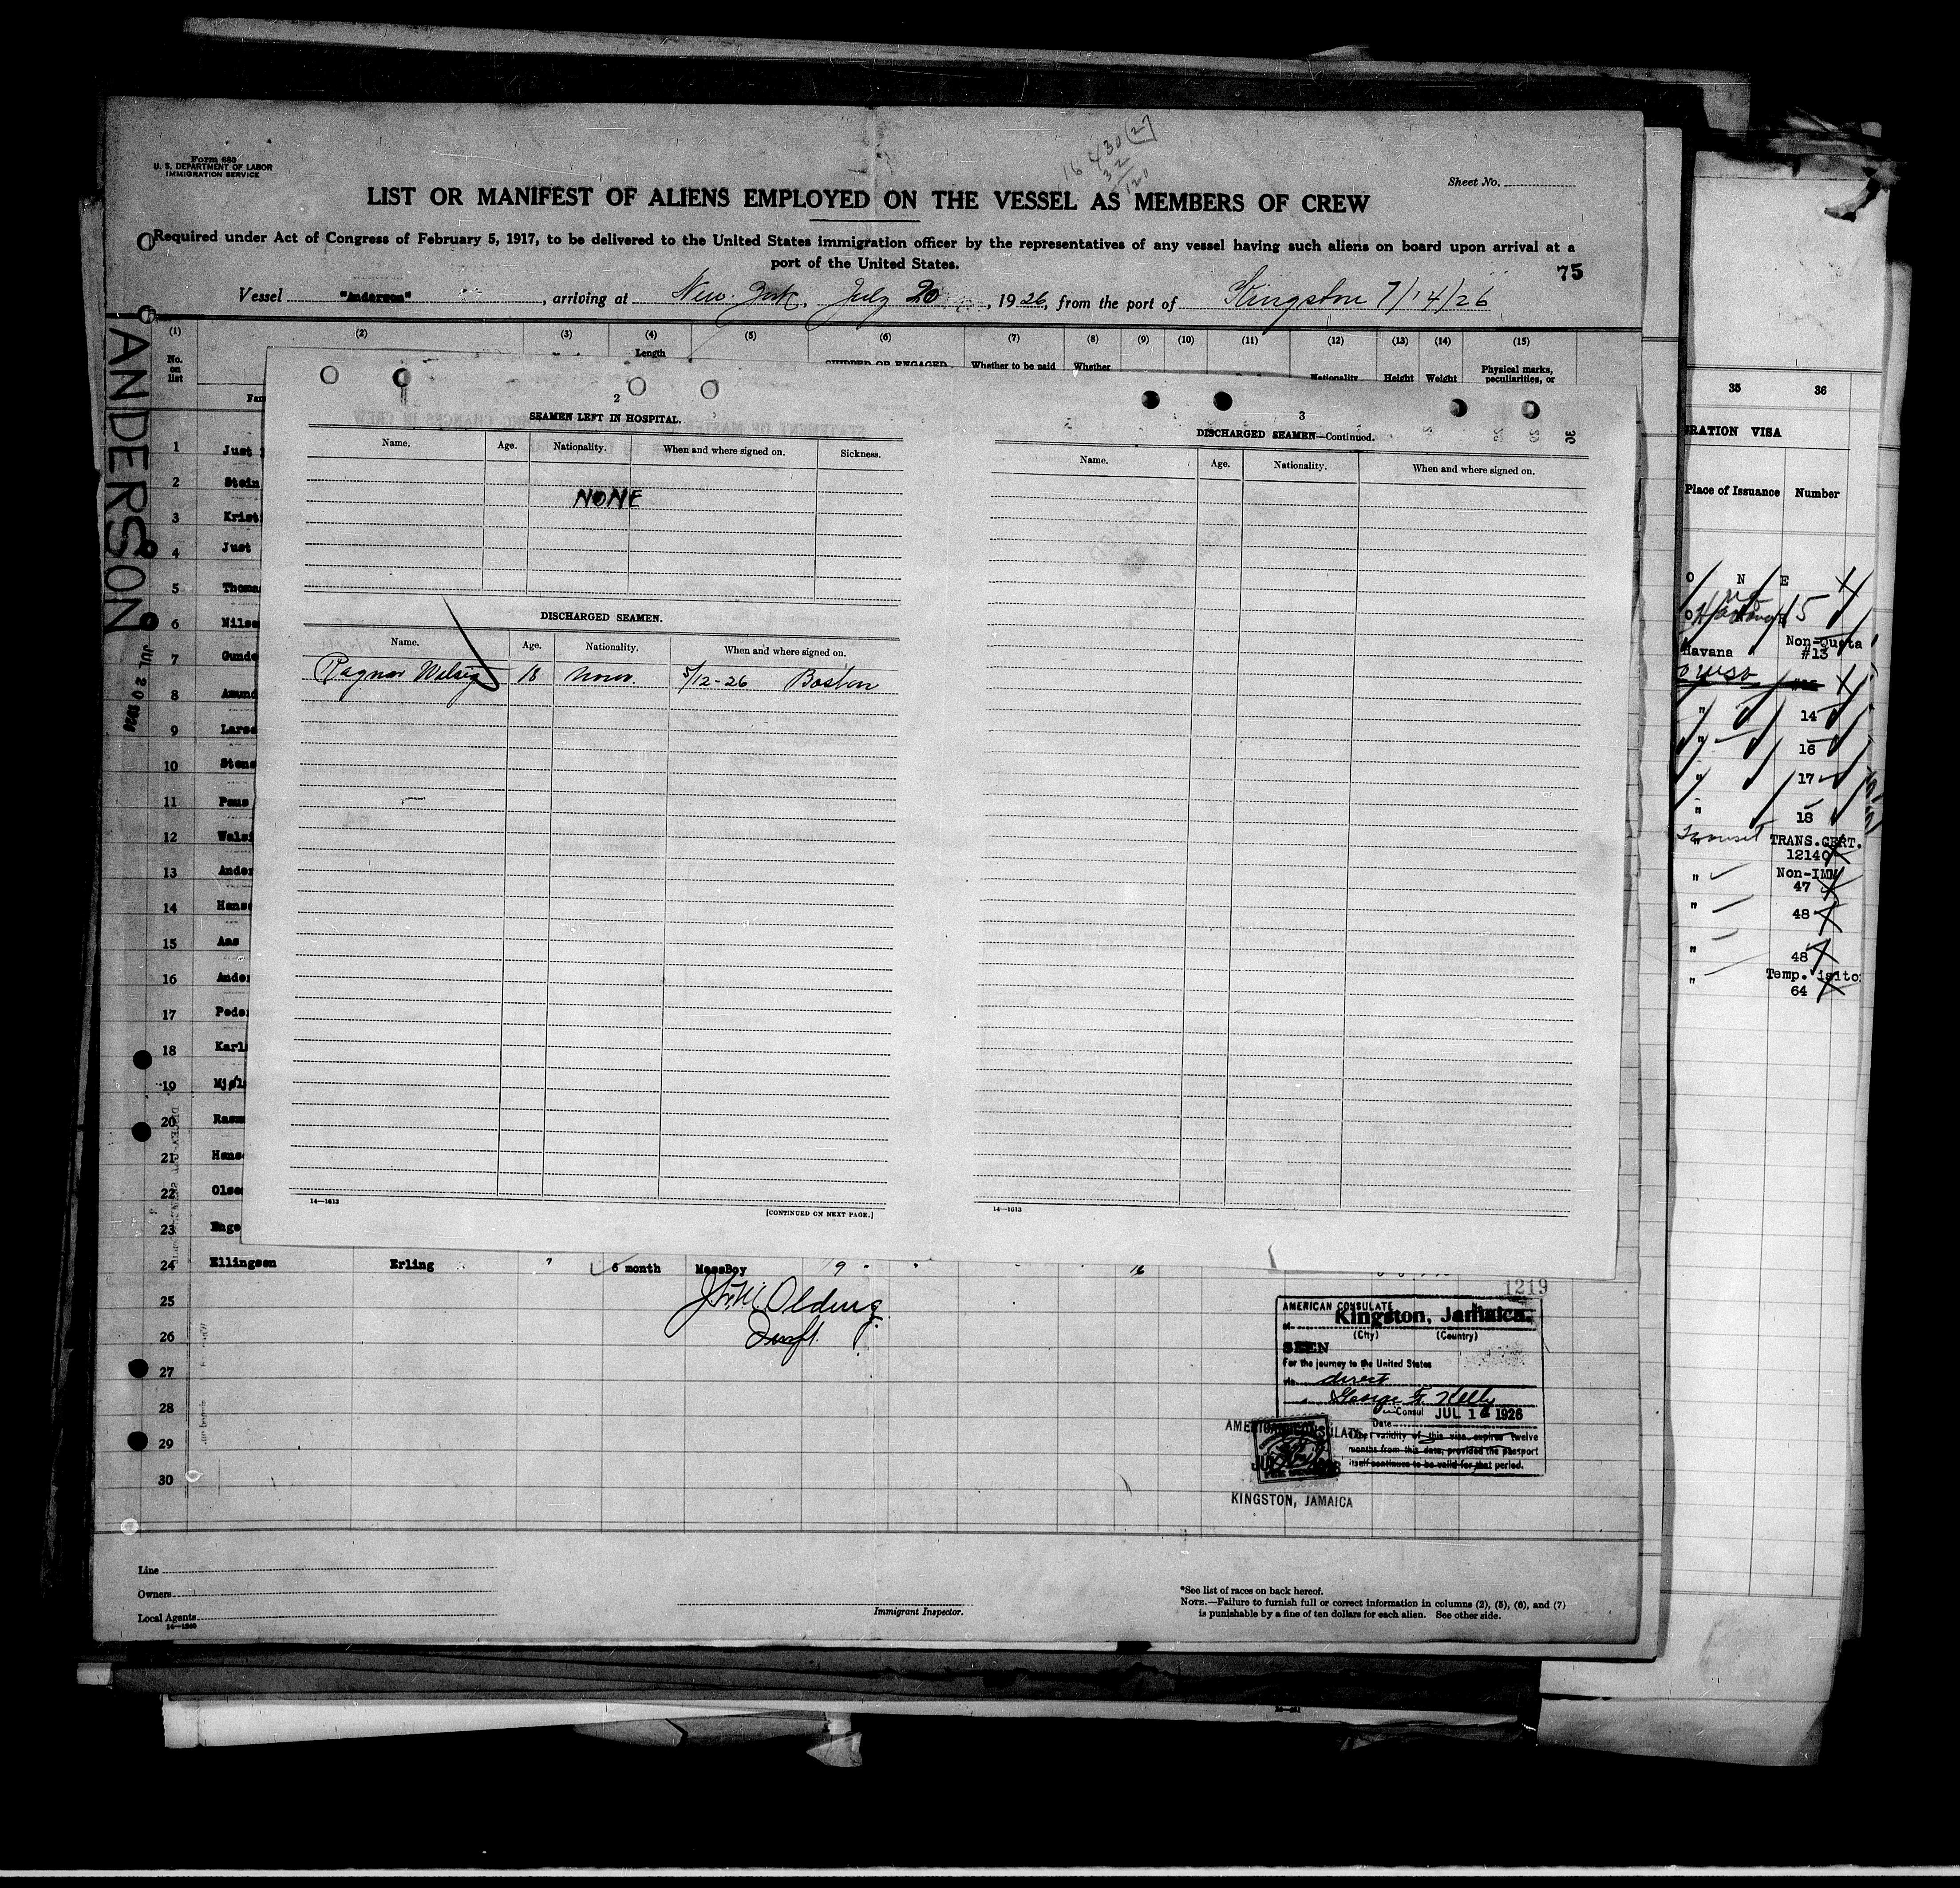 16 430 (2)
32
120
Form 680
U. S. DEPARTMENT OF LABOR
IMMIGRATION SERVICE
Sheet No.
LIST OR MANIFEST OF ALIENS EMPLOYED ON THE VESSEL AS MEMBERS OF CREW
Required under Act of Congress of February 5, 1917, to be delivered to the United States immigration officer by the representatives of any vessel having such aliens on board upon arrival at a
port of the United States.
75
Vessel "Anderson", arriving at New York, July 20, 1926, from the port of Kingston 7/14/26
ANDERSON
JUL 20 1926
(1) (2) (3) (4) (5) (6) (7) (8) (9) (10) (11) (12) (13) (14) (15)
No. on list
Length
SHIPPED OR ENGAGED
Whether to be paid
Whether
Nationality
Height
Weight
Physical marks, peculiarities, or
2
SEAMEN LEFT IN HOSPITAL.
Name. Age. Nationality. When and where signed on. Sickness.
NONE
DISCHARGED SEAMEN.
Name. Age. Nationality. When and where signed on.
Ragnar 18 Norw. 5/12-26 Boston
14—1613
[CONTINUED ON NEXT PAGE.]
3
DISCHARGED SEAMEN—Continued.
Name. Age. Nationality. When and where signed on.
14—1613
1 Just
2 Stein
3 Krist
4 Just
5 Thoma
6 Nils
7 Gunde
8 Amund
9 Lars
10 Stene
11 Paus
12 Walsi
13 Ander
14 Hans
15 Aas
16 Ander
17 Peder
18 Karl
19 Mjøl
20 Rasm
21 Hans
22 Olse
23 Enge
24 Ellingsen Erling " 6 month MessBoy 9 " 16
25
26
27
28
29
30
1219
AMERICAN CONSULATE
at Kingston, Jamaica.
(City) (Country)
SEEN
For the journey to the United States
via direct
George G. Kelly
Consul JUL 14 1926
Date
The validity of this visa expires twelve
months from this date, provided the passport
itself continues to be valid for that period.
AMERICAN CONSULATE
KINGSTON, JAMAICA
Line
Owners
Local Agents
14—1240
Immigrant Inspector.
*See list of races on back hereof.
NOTE.—Failure to furnish full or correct information in columns (2), (5), (6), and (7)
is punishable by a fine of ten dollars for each alien. See other side.
35 36
GRATION VISA
Place of Issuance Number
O N E
Non-Quota
Havana #13
" 14
" 16
" 17
" 18
Transit TRANS.CERT.
" 12140
" Non-IMM
47
" 48
" 48
" Temp. isito
64